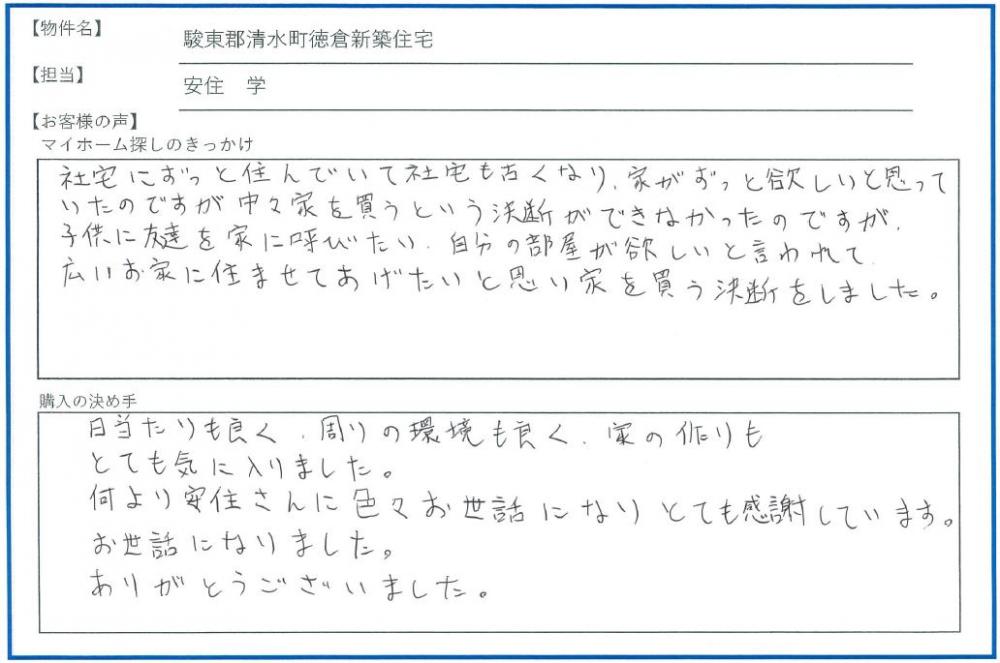 【物件名】 駿東郡清水町徳倉新築住宅
【担当】 安住　学
【お客様の声】
マイホーム探しのきっかけ
社宅にずっと住んでいて社宅も古くなり、家がずっと欲しいと思って
いたのですが中々家を買うという決断ができなかったのですが、
子供に友達を家に呼びたい、自分の部屋が欲しいと言われて
広いお家に住ませてあげたいと思い家を買う決断をしました。
購入の決め手
日当たりも良く、周りの環境も良く、家の作りも
とても気に入りました。
何より安住さんに色々お世話になりとても感謝しています。
お世話になりました。
ありがとうございました。